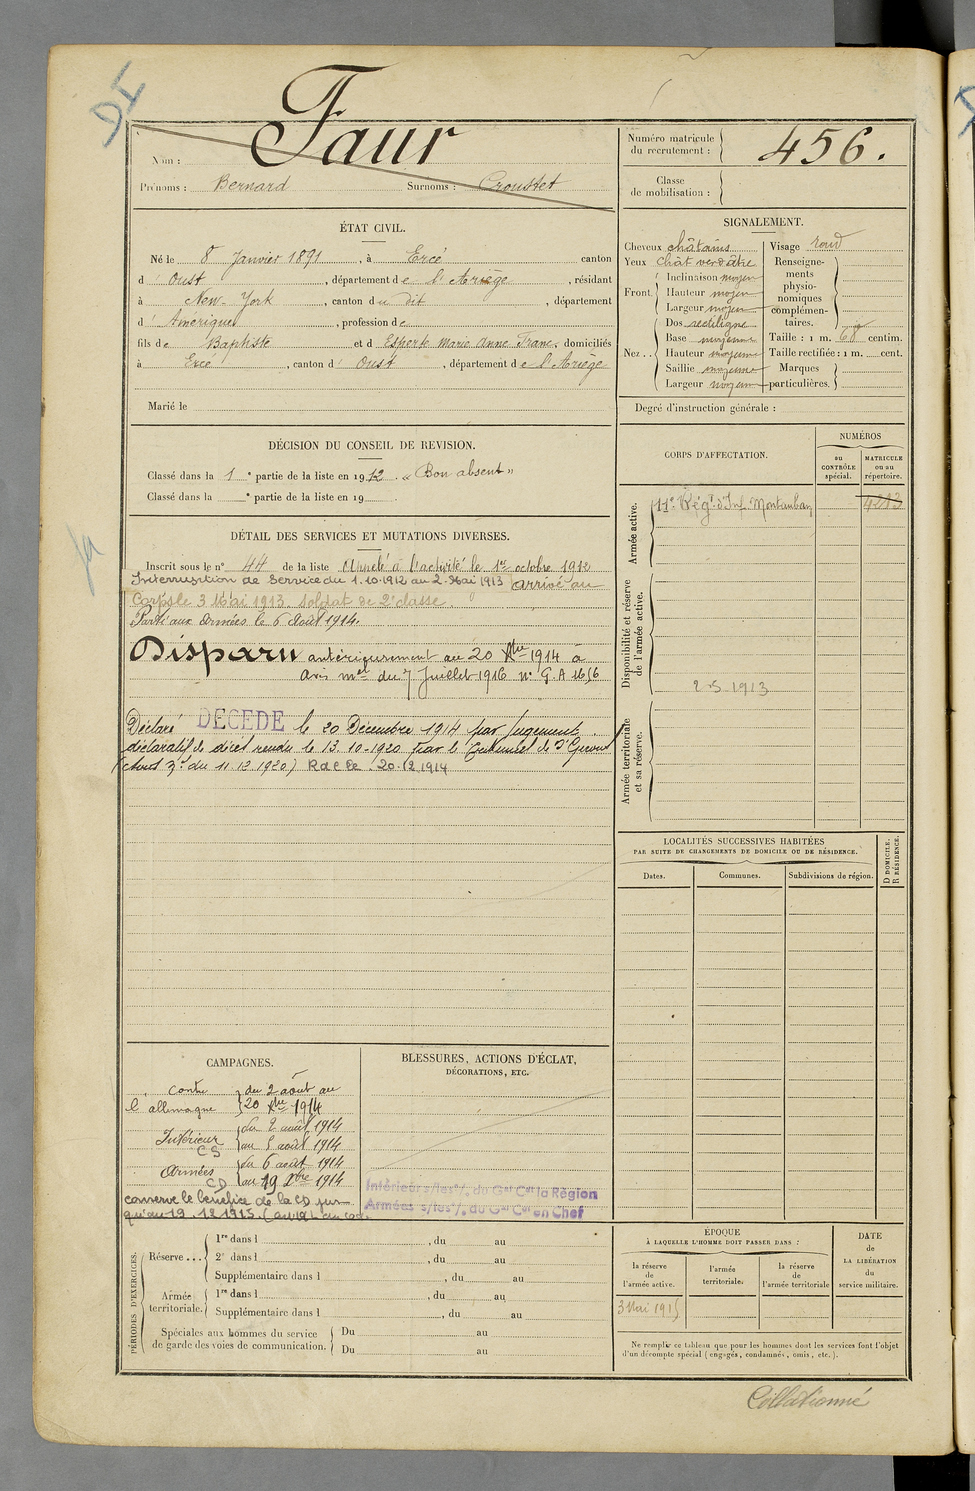 DI
Nom : Faur
Prénoms : Bernard Surnoms : Croustet
Numéro matricule du recrutement : 456.
Classe de mobilisation :
ÉTAT CIVIL.
Né le 8 Janvier 1891, à Ercé canton
d' Oust, département de l'Ariège, résidant
à New-York, canton du dit, département
d' Amérique, profession de
fils de Baptiste et d Esperte Marie Anne Franc. domiciliés
à Ercé, canton d' Oust, département de l'Ariège
Marié le
SIGNALEMENT.
Cheveux châtains
Yeux chât verdâtre
Front
Inclinaison moyen
Hauteur moyen
Largeur moyen
Nez
Dos rectiligne
Base moyenne
Hauteur moyenne
Saillie moyenne
Largeur moyenne
Visage rond
Renseignements physionomiques complémentaires.
Taille : 1 m. centim.
Taille rectifiée : 1 m. cent.
Marques particulières.
Degré d'instruction générale :
DÉCISION DU CONSEIL DE REVISION.
Classé dans la 1e partie de la liste en 1912. « Bon absent »
Classé dans la e partie de la liste en 19
DÉTAIL DES SERVICES ET MUTATIONS DIVERSES.
Inscrit sous le n° 44 de la liste Appelé à l'activité le 1er octobre 1912
Interruption de service du 1.10.1912 au 2 Mai 1913 arrivé au
Corps le 3 Mai 1913. soldat de 2e classe
Parti aux Armées le 6 Août 1914.
Disparu antérieurement au 20 Xbre 1914 à
avis mel du 7 Juillet 1916 n° G.A 1656
Déclaré DECEDE le 20 Décembre 1914 par Jugement
déclaratif de décès rendu le 13.10.1920 par le Tribunal de St Girons
(du 11.12.1920) R.d.C le 20.12.1914
CORPS D'AFFECTATION.
NUMÉROS
au CONTRÔLE spécial.
MATRICULE ou au répertoire.
Armée active.
11e Régt d'Inf. Montauban 4213
Disponibilité et réserve de l'armée active.
2-5-1913
Armée territoriale et sa réserve.
LOCALITÉS SUCCESSIVES HABITÉES
PAR SUITE DE CHANGEMENTS DE DOMICILE OU DE RÉSIDENCE.
Dates.
Communes.
Subdivisions de région.
D DOMICILE.
R RÉSIDENCE.
CAMPAGNES.
Contre du 2 août au
l'allemagne 20 Xbre 1914
Intérieur du 2 août 1914
CS au 5 août 1914
Armées du 6 août 1914
CD au 19 Xbre 1914
conserve le bénéfice de la CD jus
qu'au 19.12.1915
BLESSURES, ACTIONS D'ÉCLAT,
DÉCORATIONS, ETC.
Intérieur s/les o/. du Gal Ct la Région
Armées s/les o/. du Gal Ct en Chef
PÉRIODES D'EXERCICES.
Réserve...
1re dans l , du au
2e dans l , du au
Supplémentaire dans l , du au
Armée territoriale.
1re dans l , du au
Supplémentaire dans l , du au
Spéciales aux hommes du service
de garde des voies de communication.
Du au
Du au
ÉPOQUE
À LAQUELLE L'HOMME DOIT PASSER DANS :
la réserve de l'armée active.
l'armée territoriale.
la réserve de l'armée territoriale
DATE
de
LA LIBÉRATION
du
service militaire.
3 Mai 1915
Ne remplir ce tableau que pour les hommes dont les services font l'objet
d'un décompte spécial (engagés, condamnés, omis, etc.).
Collationné